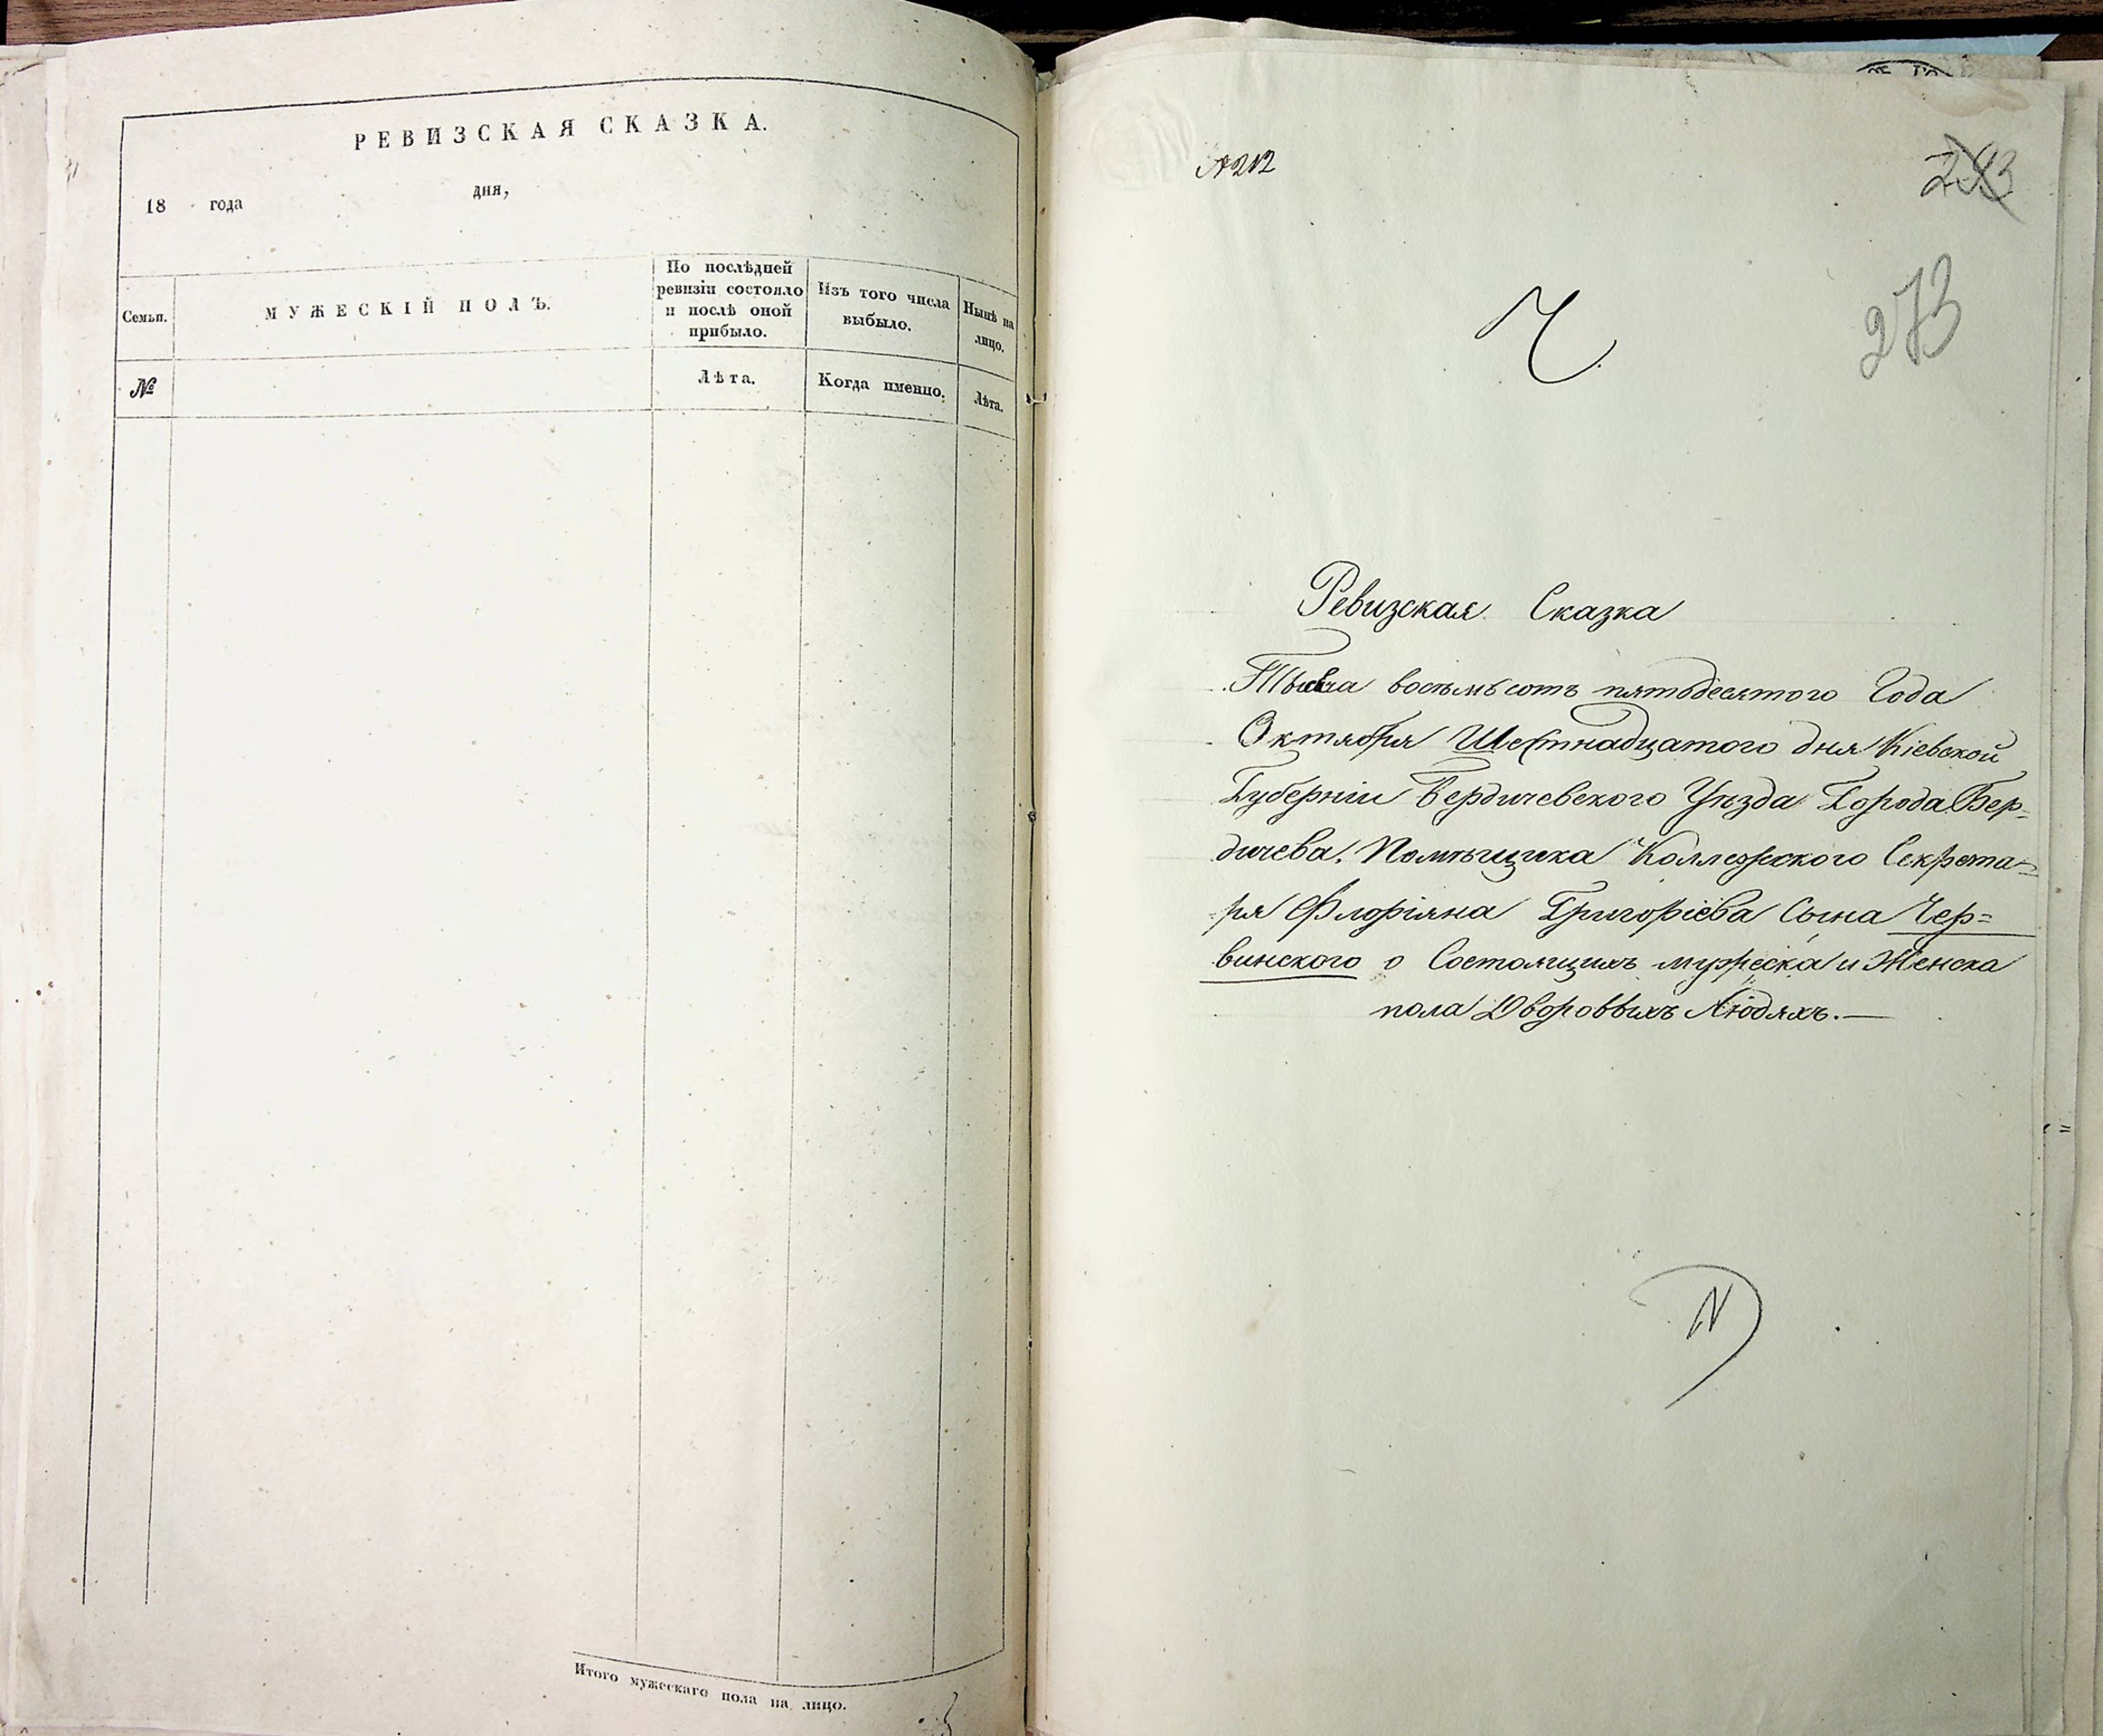 РЕВИЗСКАЯ СКАЗКА.
18 года дня,
Семьи.
МУЖЕСКІЙ ПОЛЪ.
По послѣдней
ревизіи состояло
и послѣ оной
прибыло.
Изъ того числа
выбыло.
Нынѣ на
лицо.
№
Лѣта.
Когда именно.
Лѣта.
Итого мужескаго пола на лицо.
№ 212
293
273
Ч.
Ревизская Сказка
Тысяча восемьсотъ пятьдесятого Года
Октября Шестнадцатого дня Кіевской
Губерніи Бердичевского Уѣзда Города Бер=
дичева. Помѣщика Коллежского Секрета=
ря Флоріяна Григоріева Сына Чер=
винского о Состоящихъ мужеска и Женска
пола Дворовыхъ Людяхъ.—